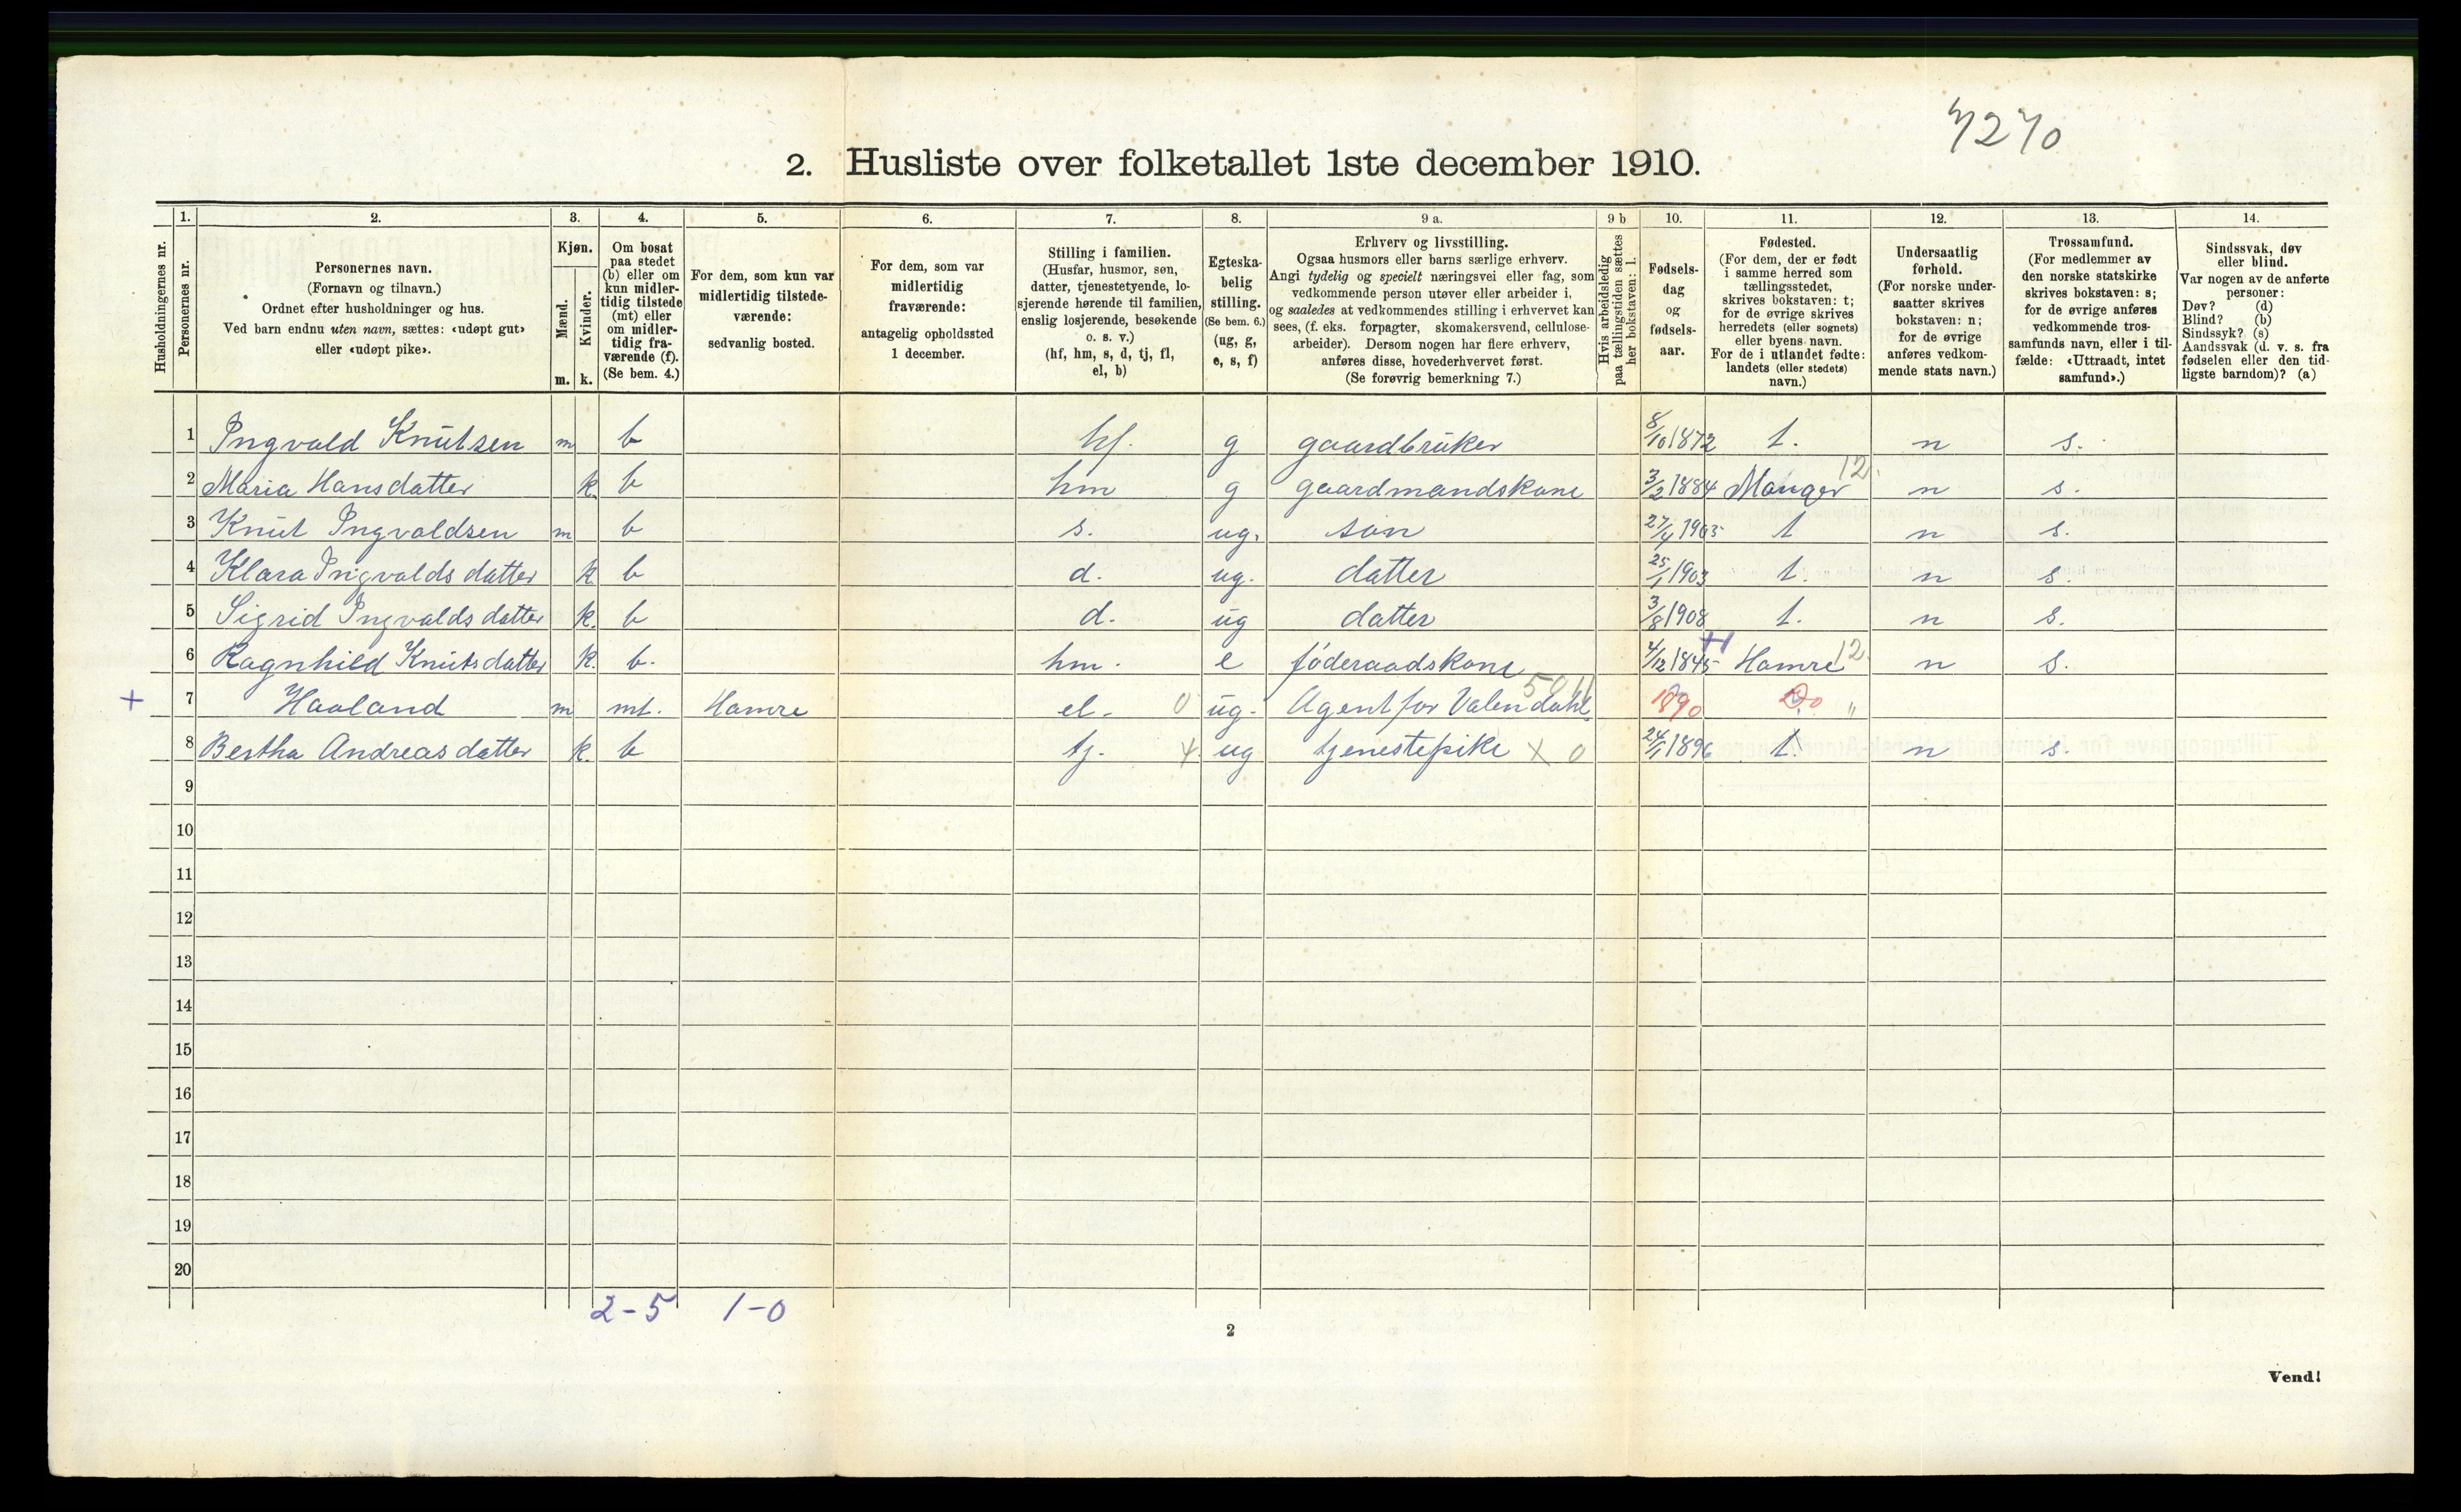 7270
2. Husliste over folketallet 1ste december 1910.
Husholdningernes nr.
1. Personernes nr.
2. Personernes navn. (Fornavn og tilnavn.) Ordnet efter husholdninger og hus. Ved barn endnu uten navn, sættes: «udøpt gut» eller «udøpt pike».
3. Kjøn. Mænd. m. Kvinder. k.
4. Om bosat paa stedet (b) eller om kun midlertidig tilstede (mt) eller om midlertidig fraværende (f). (Se bem. 4.)
5. For dem, som kun var midlertidig tilstedeværende: sedvanlig bosted.
6. For dem, som var midlertidig fraværende: antagelig opholdssted 1 december.
7. Stilling i familien. (Husfar, husmor, søn, datter, tjenestetyende, losjerende hørende til familien, enslig losjerende, besøkende o. s. v.) (hf, hm, s, d, tj, fl, el, b)
8. Egteskabelig stilling. (Se bem. 6.) (ug, g, e, s, f)
9 a. Erhverv og livsstilling. Ogsaa husmors eller barns særlige erhverv. Angi tydelig og specielt næringsvei eller fag, som vedkommende person utøver eller arbeider i, og saaledes at vedkommendes stilling i erhvervet kan sees, (f. eks. forpagter, skomakersvend, cellulosearbeider). Dersom nogen har flere erhverv, anføres disse, hovederhvervet først. (Se forøvrig bemerkning 7.)
9 b Hvis arbeidsledig paa tællingstiden sættes her bokstaven: l.
10. Fødselsdag og fødselsaar.
11. Fødested. (For dem, der er født i samme herred som tællingsstedet, skrives bokstaven: t; for de øvrige skrives herredets (eller sognets) eller byens navn. For de i utlandet fødte: landets (eller stedets) navn.)
12. Undersaatlig forhold. (For norske undersaatter skrives bokstaven: n; for de øvrige anføres vedkommende stats navn.)
13. Trossamfund. (For medlemmer av den norske statskirke skrives bokstaven: s; for de øvrige anføres vedkommende trossamfunds navn, eller i tilfælde: «Uttraadt, intet samfund».)
14. Sindssvak, døv eller blind. Var nogen av de anførte personer: Døv? (d) Blind? (b) Sindssyk? (s) Aandssvak (d. v. s. fra fødselen eller den tidligste barndom)? (a)
1 Ingvald Knutsen m b hf. g gaardbruker 8/10 1872 t. n s.
2 Maria Hansdatter k. b hm g gaardmandskone 3/2 1884 Manger 12. n s.
3 Knut Ingvaldsen m b s. ug. søn 27/4 1905 t n s.
4 Klara Ingvaldsdatter k. b d. ug. datter 25/1 1903 t. n s.
5 Sigrid Ingvaldsdatter k. b d. ug datter 3/8 1908 t. n s.
6 Ragnhild Knutsdatter k. b. hm. e føderaadskone 4/12 1845 H Hamre 12. n s.
+ 7 Haaland m mt. Hamre el. 0 ug. Agent for Valendahl 1890 "
8 Bertha Andreasdatter k. b tj. ug tjenestepike X 0 24/1 1896 t. n s.
9
10
11
12
13
14
15
16
17
18
19
20
2-5 1-0
2
Vend!